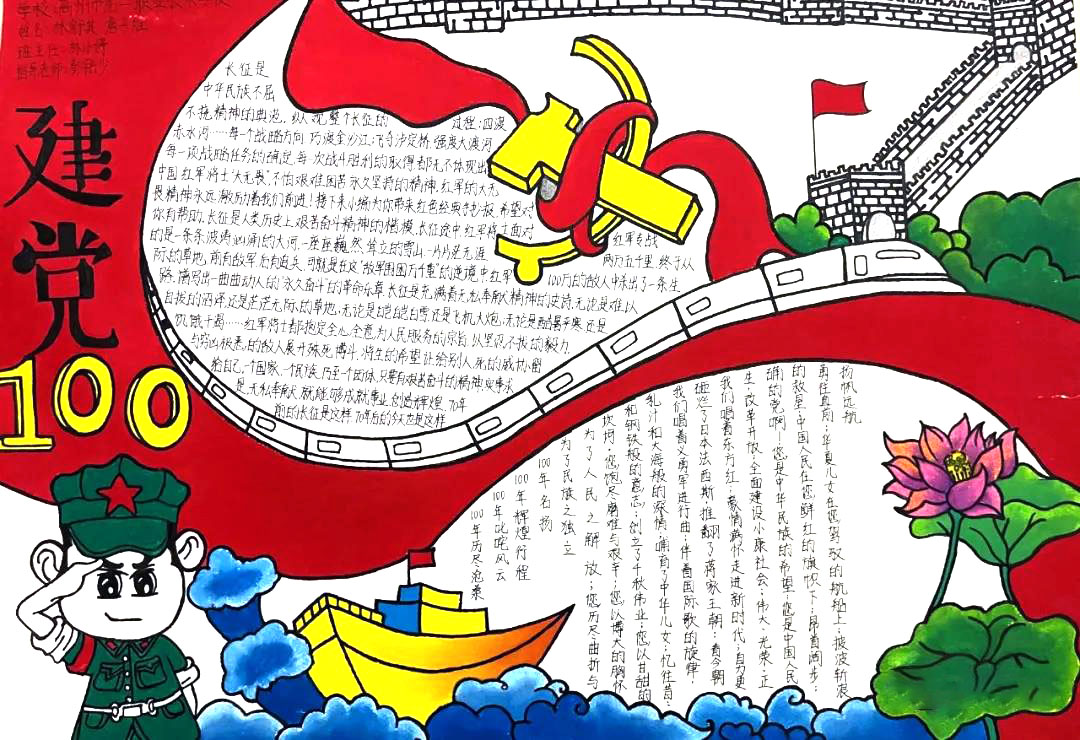 学校:温州市第一职业技术学校
班主任:林小婷
建党
100
长征是
中华民族不屈
不挠精神的典范，纵观整个长征的过程:四渡
赤水河……每个战略方向，巧渡金沙江;飞夺泸定桥，强度大渡河
每一项战略任务的确定，每一次战斗胜利的取得，都无不体现出
中国红军将士“大无畏”不怕艰难困苦永久坚持的精神，红军的大无
畏精神永远激励着我们前进！接下来小编为你带来红色经典手抄报，希望对
你有帮助。长征是人类历史上艰苦奋斗精神的楷模，长征途中红军将士面对
的是一条条波涛汹涌的大河，一座座巍然耸立的雪山，一片片茫无涯
际的草地，前有敌军后有追兵，可就是在这“敌军围困万千重”的逆境中，红军
路，谱写出一曲曲动人的永久奋斗的革命乐章，长征是充满着无私奉献精神的史诗，无论是难以
自拔的沼泽还是茫茫无际的草地，无论是皑皑白雪还是飞机大炮，无论是酷暑严寒还是
饥饿干渴……红军将士都抱定全心全意为人民服务的宗旨，以坚忍不拔的毅力，
与穷凶极恶的敌人展开殊死博斗，将生的希望让给别人，死的威胁留
给自己，一个国家、一个民族、乃至一个团体，只要有艰苦奋斗的精神，要事求
是，无私奉献，就能够成就事业，创造辉煌，70年
前的长征是这样，70年后的今天也是这样
红军专战
两万五千里，终于从
100万的敌人中杀出了一条生
扬帆远航
再任直前;华夏儿女在您驾驭的航船上;披波斩浪
的敌星;中国人民在您鲜红的旗帜下;昂首阔步;
确的党啊—您是中华民族的希望;您是中国人民
生;改革开放;全面建设小康社会;伟大、光荣、正
我们唱着东方红;豪情满怀走进新时代;自力更
砸烂了日本法西斯推翻了蒋家王朝;看今朝
我们唱着义勇军进行曲;伴着国际歌的旋律;
乳汁和大海般的深情;哺育了中华儿女;忆往昔:
和钢铁般的意志;创立了千秋伟业;您以甘甜的
坎坷;您饱尽磨难与艰辛;您以博大的胸怀
为了人民之解放;您历尽曲折与
为了民族之独立
100年名扬
100年辉煌行程
100年叱咤风云
100年历尽沧桑